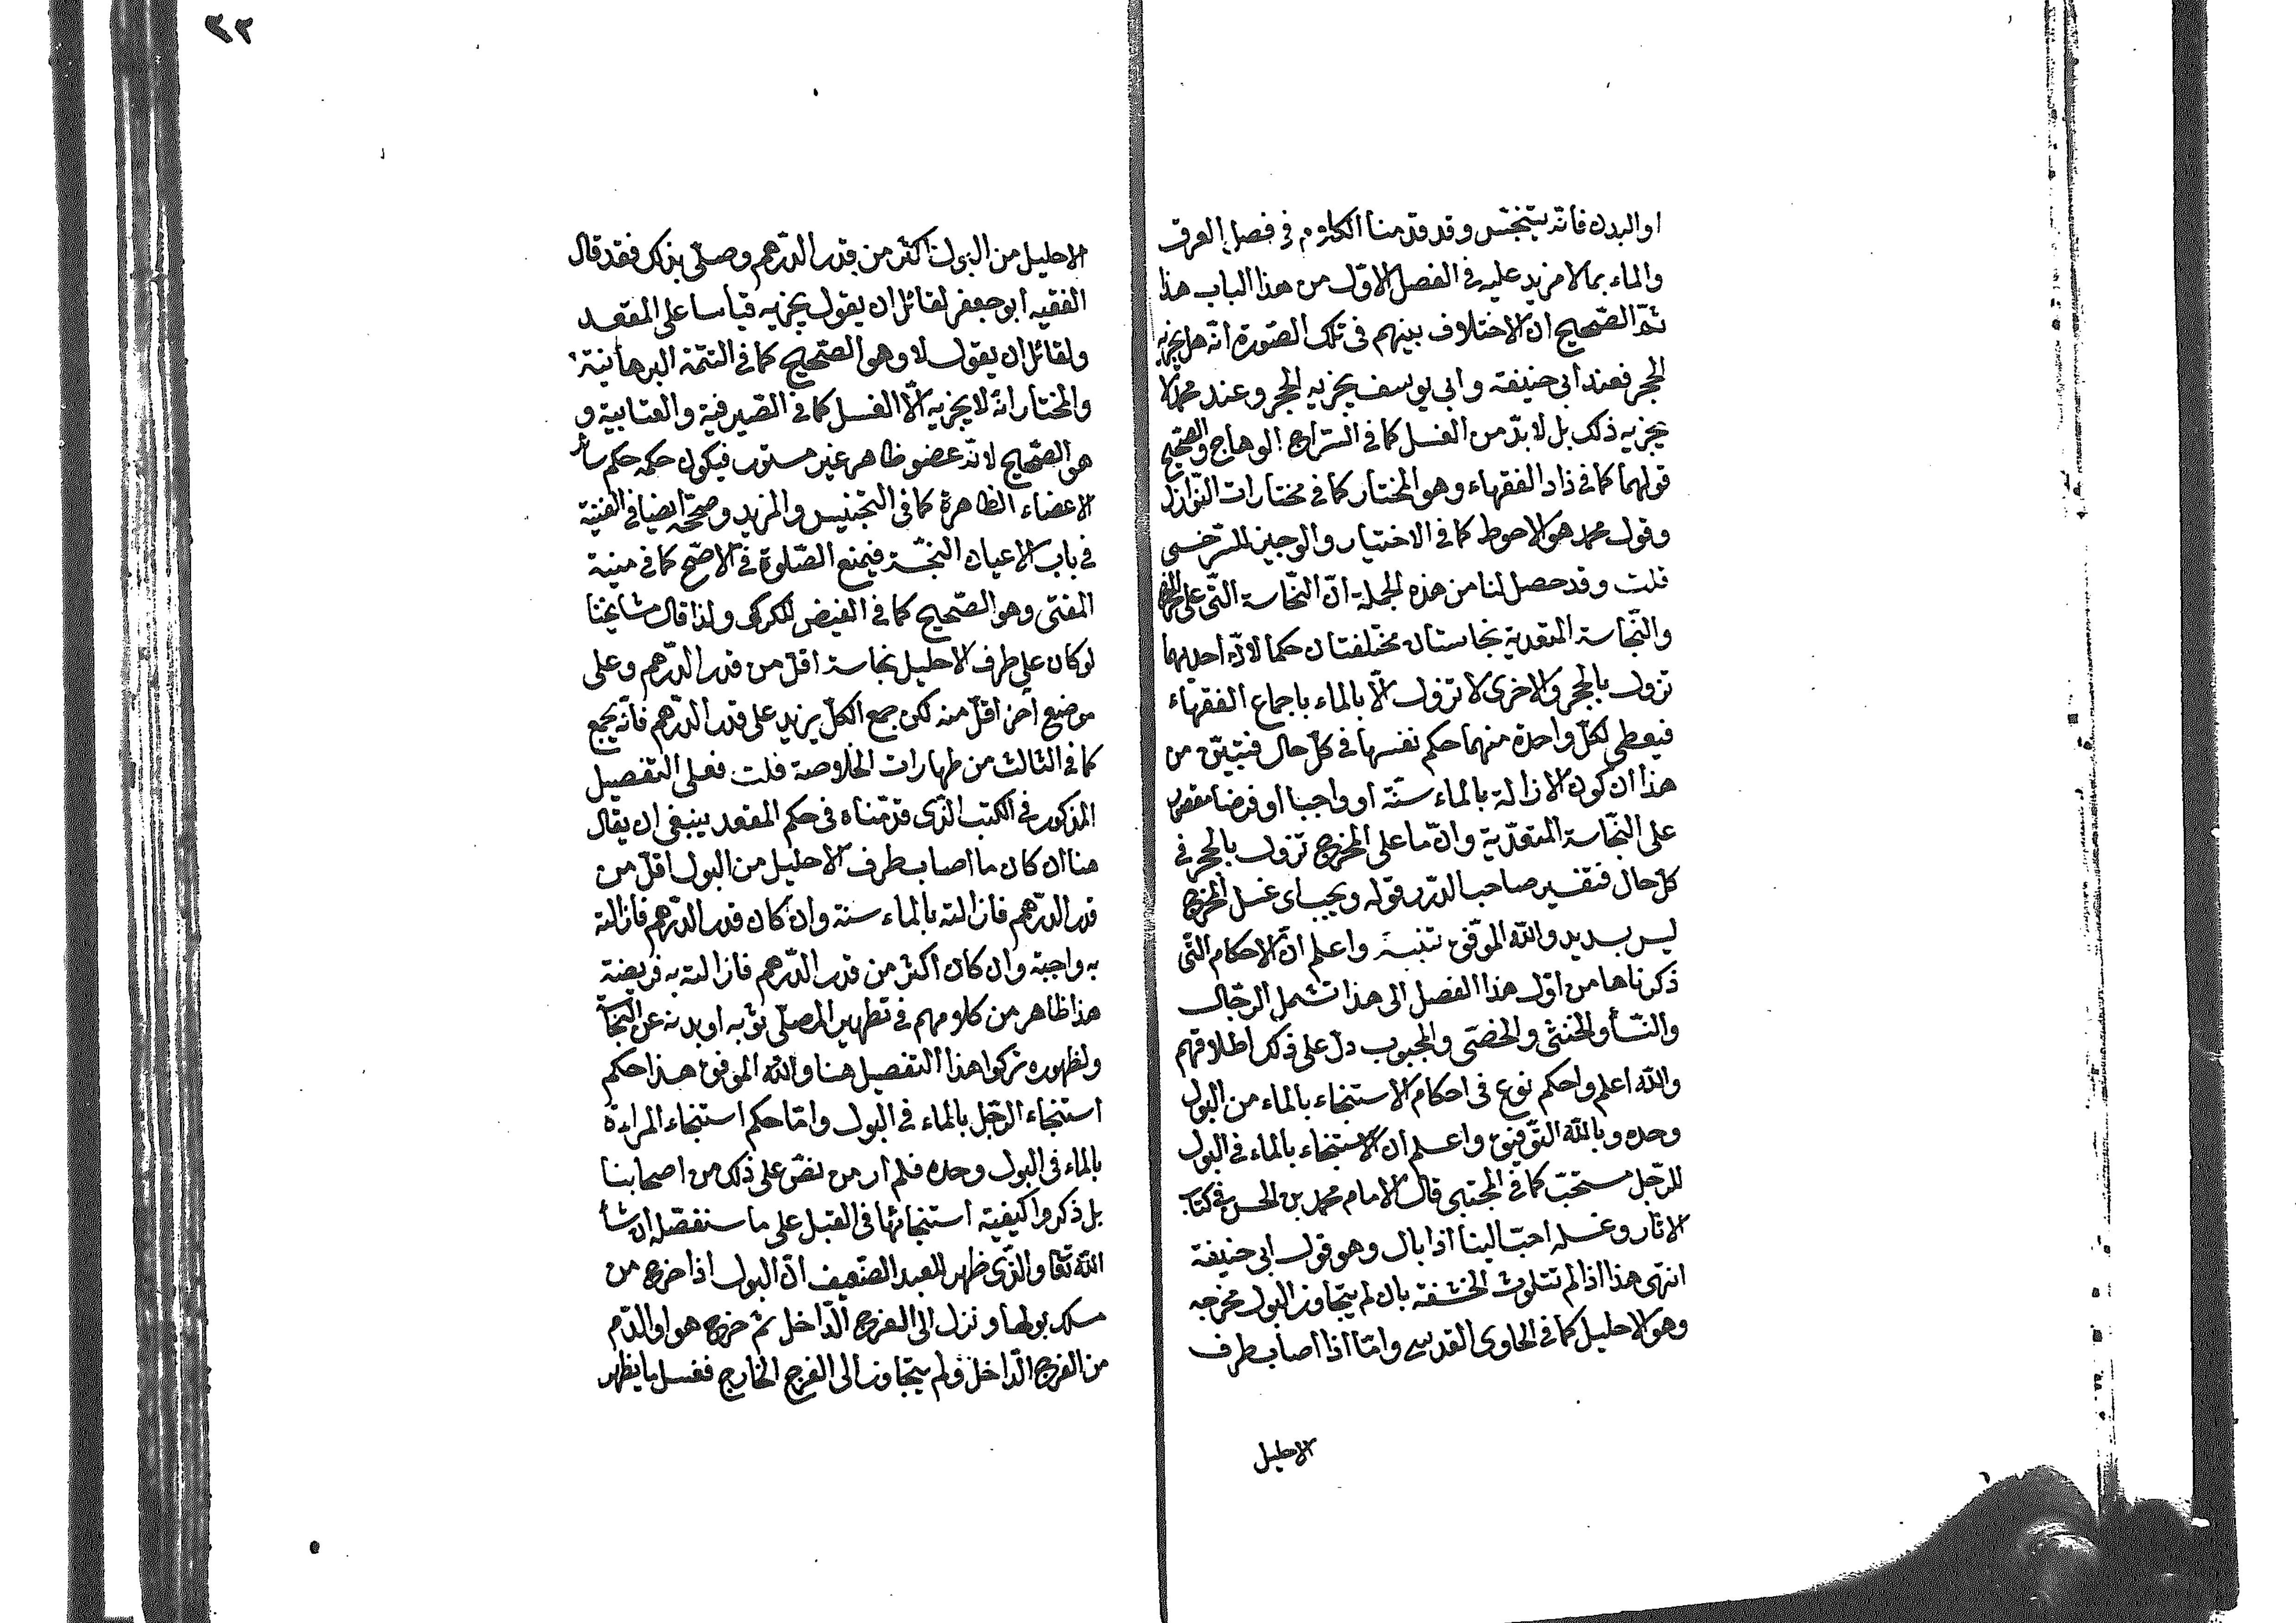 او البدن فانه يتنجس وقد قدمنا الكلام في فصل العرف
والماء بما لا مزيد عليه في الفصل الاول من هذا الباب هذا
ثم الصحيح ان الاختلاف بينهم في تلك الصورة انه هل يجزيه
الحجر فعند ابي حنيفة وابي يوسف يجزيه الحجر وعند محمد لا
يجزيه ذلك بل لا بد من الغسل كما في السراج الوهاج والصحيح
قولهما كما في زاد الفقهاء وهو المختار كما في مختارات النوازل
وقول محمد هو الاحوط كما في الاختيار والوجيز للسرخسي
قلت وقد حصل لنا من هذه الجملة ان النجاسة التي على المخرج
والنجاسة المتعدية نجاستان مختلفتان حكما لان احديهما
تزول بالحجر والاخرى لا تزول الا بالماء باجماع الفقهاء
فيعطى لكل واحدة منهما حكم نفسها في كل حال فتبين من
هذا ان كون الازالة بالماء سنة او واجبا او فرضا مقصور
على النجاسة المتعدية وان ما على المخرج تزول بالحجر في
كل حال فتفسير صاحب الدرر قوله ويجب اى غسل المخرج
ليس بسديد والله الموفق تنبيه واعلم ان الاحكام التي
ذكرناها من اول هذا الفصل الى هذا تشمل الرجال
والنسأ والخنثى والخصى والمجبوب دل على ذلك اطلاقهم
والله اعلم واحكم نوع في احكام الاستنجاء بالماء من البول
وحده وبالله التوفيق واعلم ان الاستنجاء بالماء في البول
للرجل مستحب كما في المجتبى قال الامام محمد بن الحسن في كتاب
الاثار وغسله احب الينا اذا بال وهو قول ابي حنيفة
انتهى هذا اذا لم تتلوث الحشفة بان لم يتجاوز البول مخرجه
وهو الاحليل كما في الحاوى القدسي واما اذا اصاب طرف
الاحليل
٢٢
الاحليل من البول اكثر من قدر الدرهم وصلى بذلك فقد قال
الفقيه ابو جعفر لقائل ان يقول يجزيه قياسا على المقعد
ولقائل ان يقول لا وهو الصحيح كما في التتمة البرهانية
والمختار انه لا يجزيه الا الغسل كما في الصيرفية والعتابية و
هو الصحيح لانه عضو ظاهر غير مستور فيكون حكمه حكم سائر
الاعضاء الظاهرة كما في التجنيس والمزيد وصححه ايضا في القنية
في باب الاعيان النجسة فيمنع الصلوة في الاصح كما في منية
المفتى وهو الصحيح كما في الفيض للكركى ولذا قال مشايخنا
لو كان على طرف الاحليل نجاسة اقل من قدر الدرهم وعلى
موضع اخر اقل منه لكن جمع الكل يزيد على قدر الدرهم فانه يجمع
كما في الثالث من طهارات الخلاصة قلت فعلى التفصيل
المذكور في الكتب الذى قدمناه في حكم المقعد ينبغى ان يقال
هنا ان كان ما اصاب طرف الاحليل من البول اقل من
قدر الدرهم فازالته بالماء سنة وان كان قدر الدرهم فازالته
به واجبة وان كان اكثر من قدر الدرهم فازالته به فريضة
هذا ظاهر من كلامهم في تطهير المصلى ثوبه او بدنه عن النجاسة
ولظهوره تركوا هذا التفصيل هنا والله الموفق هذا حكم
استنجاء الرجل بالماء في البول واما حكم استنجاء المراءة
بالماء في البول وحده فلم ار من نص على ذلك من اصحابنا
بل ذكروا كيفية استنجائها في القبل على ما سنفصله ان شأ
الله تعا والذى ظهر للعبد الضعيف ان البول اذا خرج من
مسلك بولها ونزل الى الفرج الداخل ثم خرج هو او الدم
من الفرج الداخل ولم يتجاوز الى الفرج الخارج فغسل ما يظهر